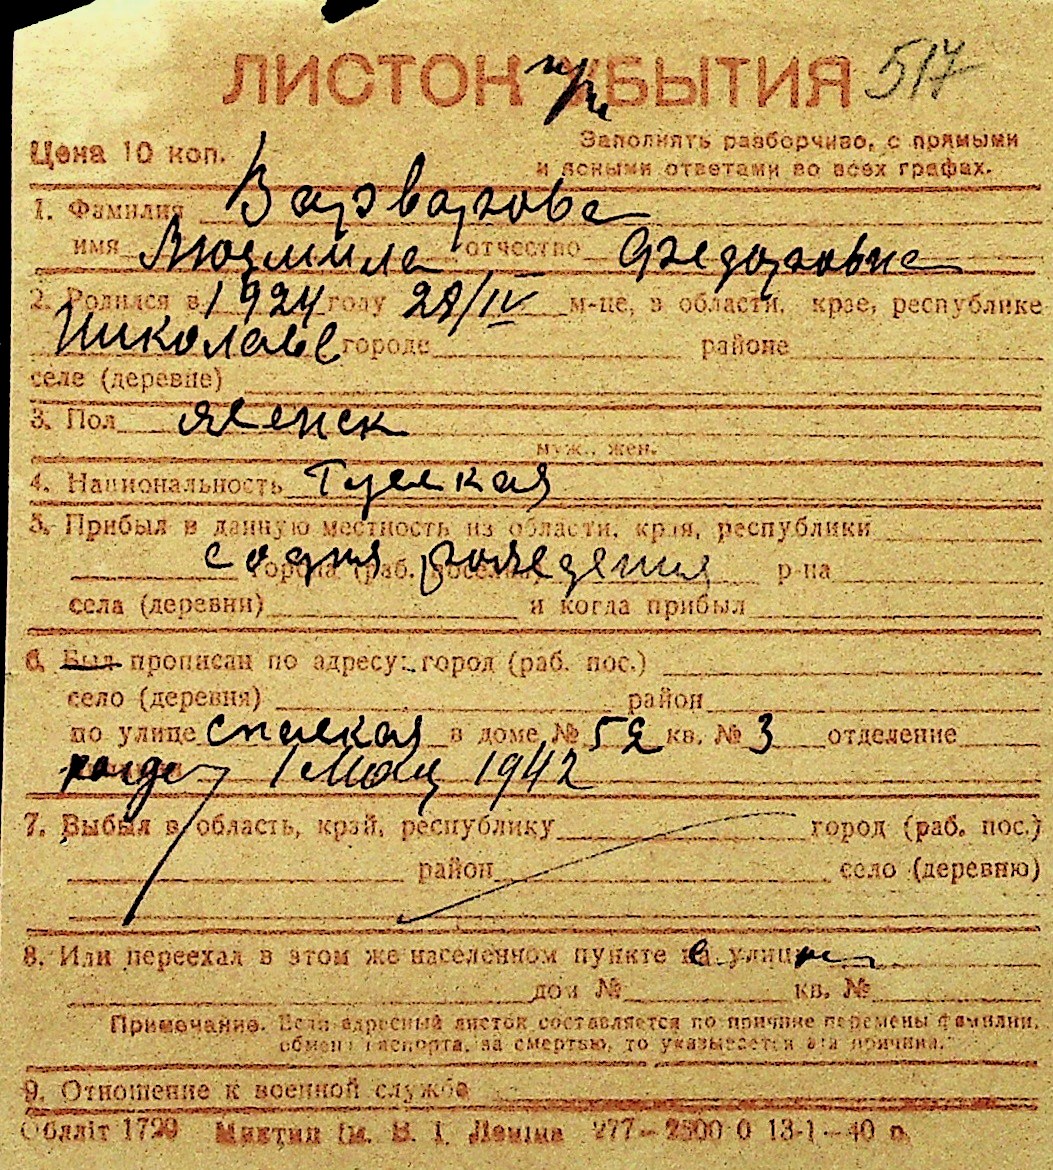 ЛИСТОК при БЫТИЯ 517
Цена 10 коп.
Заполнять разборчиво, с прямыми
и ясными ответами во всех графах.
1. Фамилия Варварова
имя Людмила отчество Федоровна
2. Родился в 1924 году 28/IV м-це, в области, крае, республике
Николаеве городе районе
селе (деревне)
3. Пол женск
муж., жен.
4. Национальность Русская
5. Прибыл в данную местность из области, края, республики
со дня рождения
города (раб. поселка) р-на
села (деревни) и когда прибыл
6. Был прописан по адресу: город (раб. пос.)
село (деревня) район
по улице Спасская в доме № 52 кв. № 3 отделение
1 Мая 1942
7. Выбыл в область, край, республику город (раб. пос.)
район село (деревню)
8. Или переехал в этом же населенном пункте с улицы
дом № кв. №
Примечание. Если адресный листок составляется по причине перемены фамилии,
обмена паспорта, за смертью, то указывается эта причина.
9. Отношение к военной службе
Обллiт 1729 Миктип iм. В. I. Ленiна 277—2500 0 13-1—40 р.